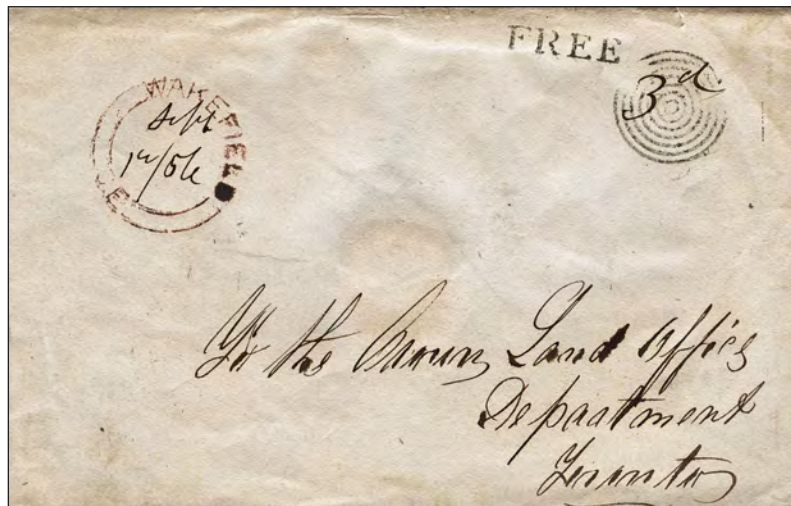 FREE
3d
WAKEFIELD
Sept
To the Crown Land Office
Department
Toronto